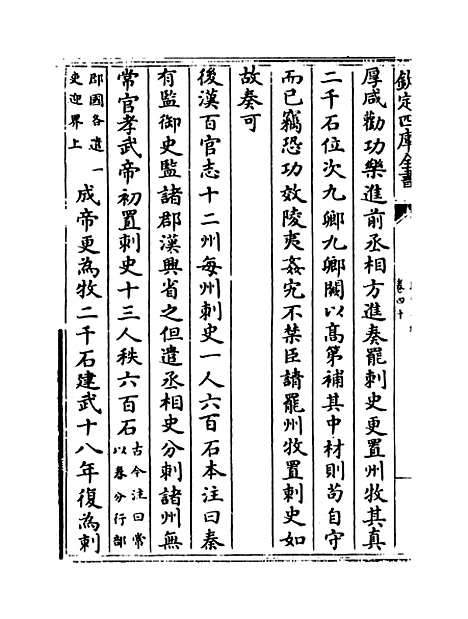 欽定四庫全書
卷四十
厚咸勸功樂進前丞相方進奏罷刺史更置州牧其真
二千石位次九卿九卿闕以高第補其中材則苟自守
而已竊恐功效陵夷姦宄不禁臣請罷州牧置刺史如
故奏可
後漢百官志十二州每州刺史一人六百石本注曰秦
有監御史監諸郡漢興省之但遣丞相史分刺諸州無
常官孝武帝初置刺史十三人秩六百石古今注曰常以春分行部
郡國各遣一吏迎界上成帝更為牧二千石建武十八年復為刺